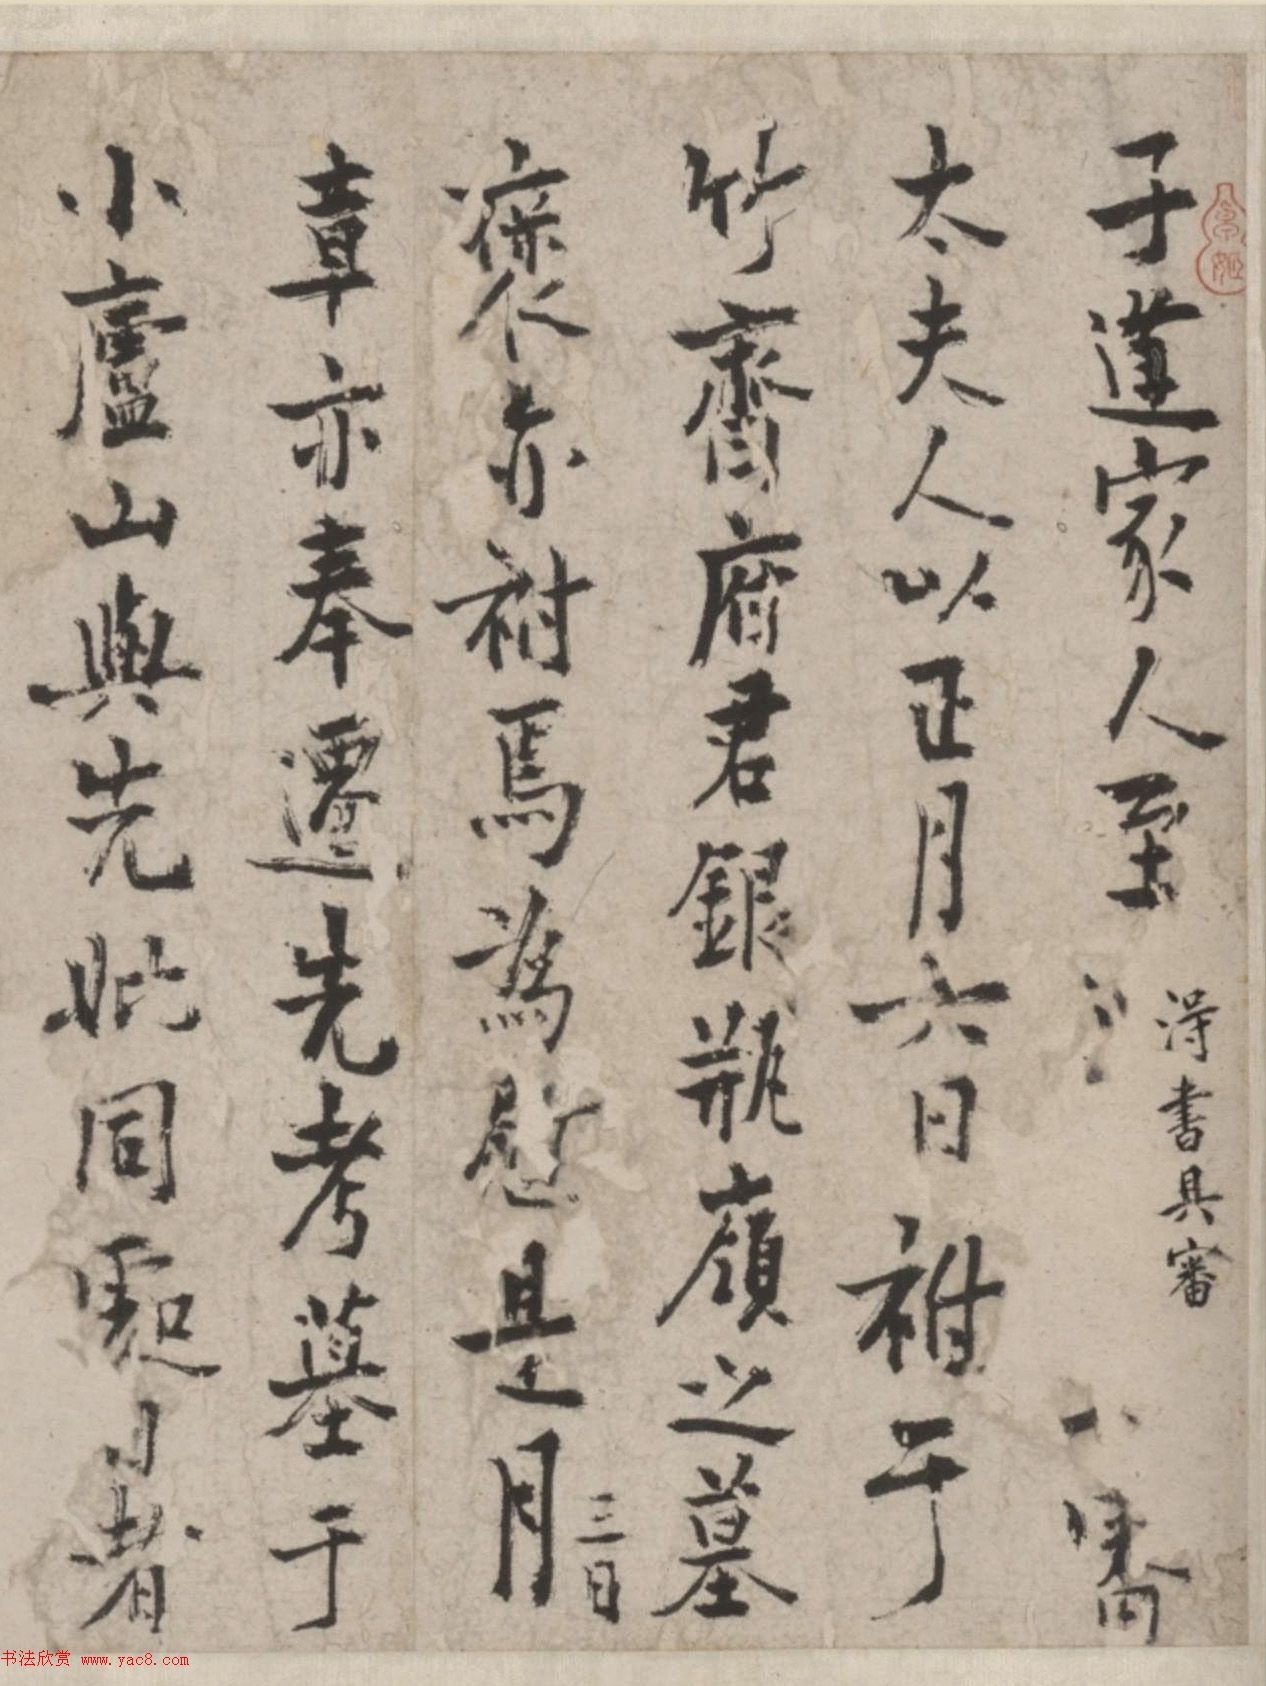 子莲家人至 得書具審
太夫人以正月六日祔于
竹齋府君銀瓶嶺之墓
寐仁亦祔焉為慰是月三日
章亦奉遷先考墓于
小廬山與先妣同
书法欣赏 www.yac8.com